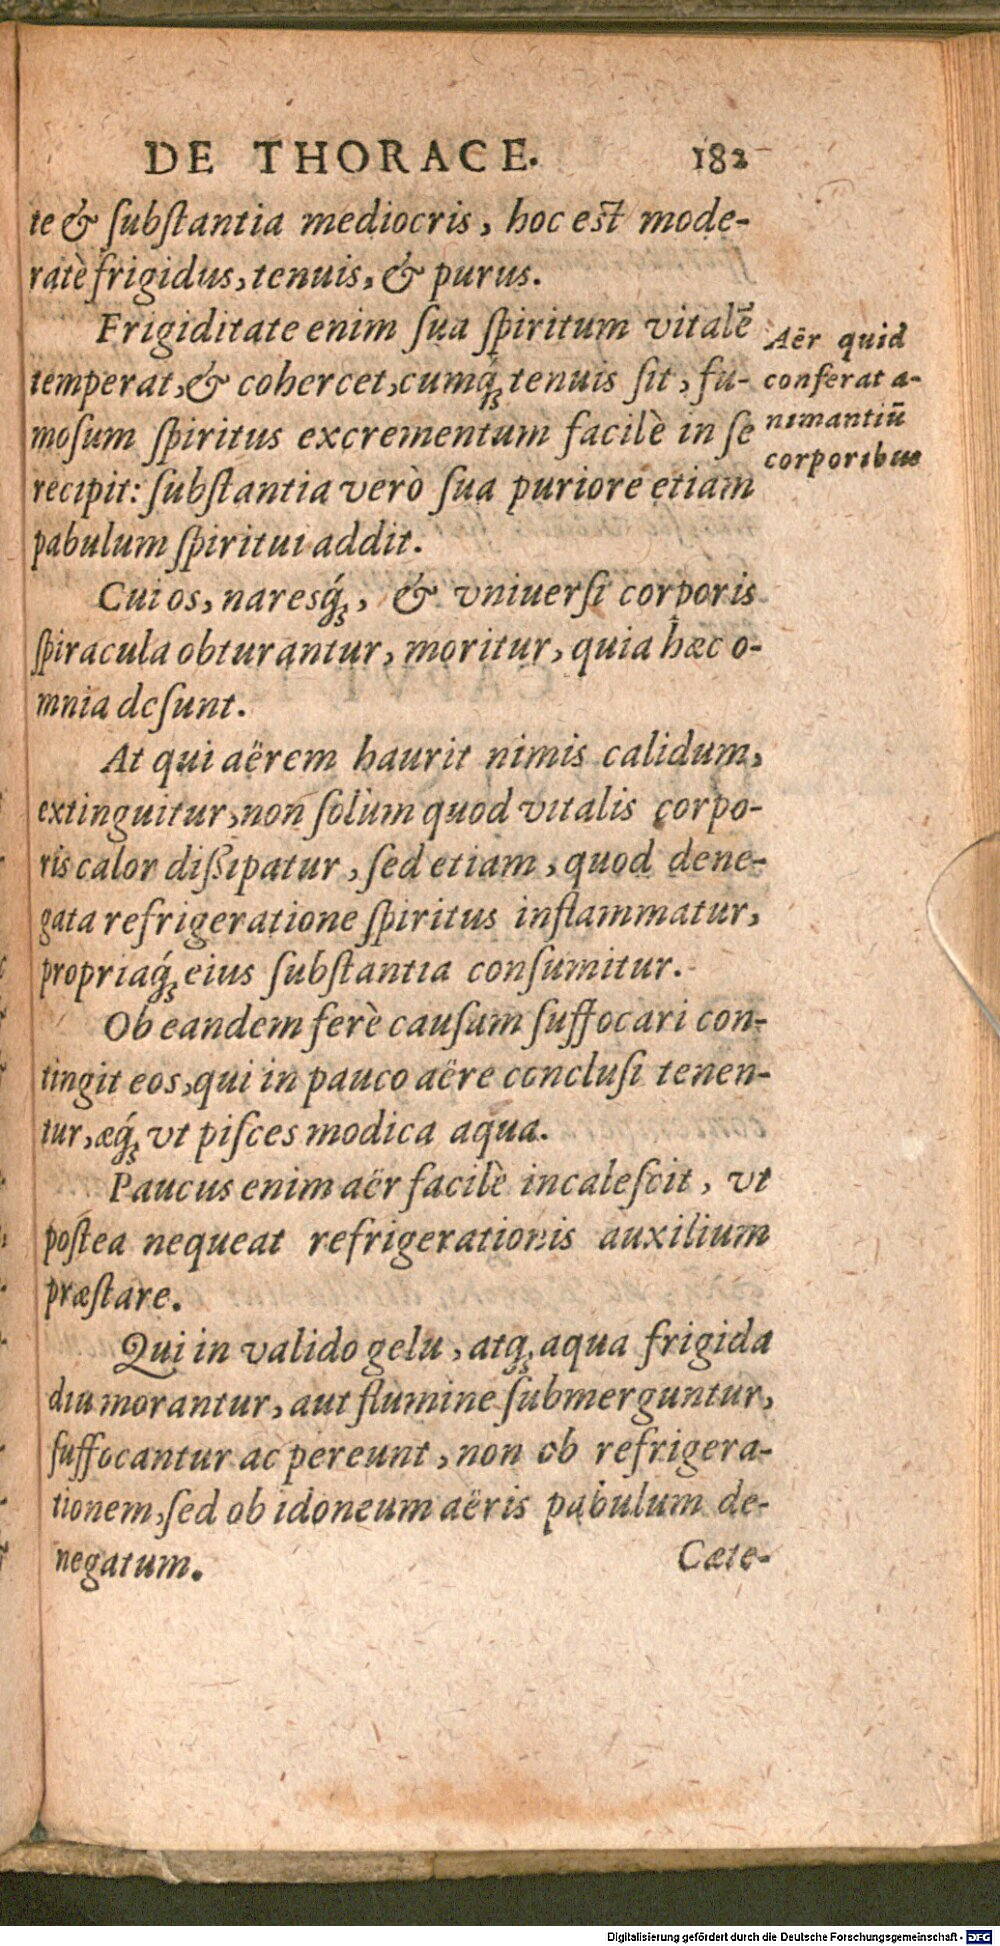 DE THORACE. 182
te & ſubſtantia mediocris, hoc eſt mode-
ratè frigidus, tenuis, & purus.
Frigiditate enim ſua ſpiritum vitalē
temperat, & cohercet, cumq́; tenuis ſit, fu-
moſum ſpiritus excrementum facilè in ſe
recipit: ſubſtantia verò ſua puriore etiam
pabulum ſpiritui addit.
Aër quid
conferat a-
nimantiū
corporibus
Cui os, naresq́;, & vniuerſi corporis
ſpiracula obturantur, moritur, quia hæc o-
mnia deſunt.
At qui aërem haurit nimis calidum,
extinguitur, non ſolùm quod vitalis corpo-
ris calor diſſipatur, ſed etiam, quod dene-
gata refrigeratione ſpiritus inflammatur,
propriaq́; eius ſubſtantia conſumitur.
Ob eandem ferè cauſum ſuffocari con-
tingit eos, qui in pauco aëre concluſi tenen-
tur, æq́; vt piſces modica aqua.
Paucus enim aër facilè incaleſcit, vt
poſtea nequeat refrigerationis auxilium
præſtare.
Qui in valido gelu, atq; aqua frigida
diu morantur, aut flumine ſubmerguntur,
ſuffocantur ac pereunt, non ob refrigera-
tionem, ſed ob idoneum aëris pabulum de-
negatum.
Cæte-
Digitalisierung gefördert durch die Deutsche Forschungsgemeinschaft - DFG